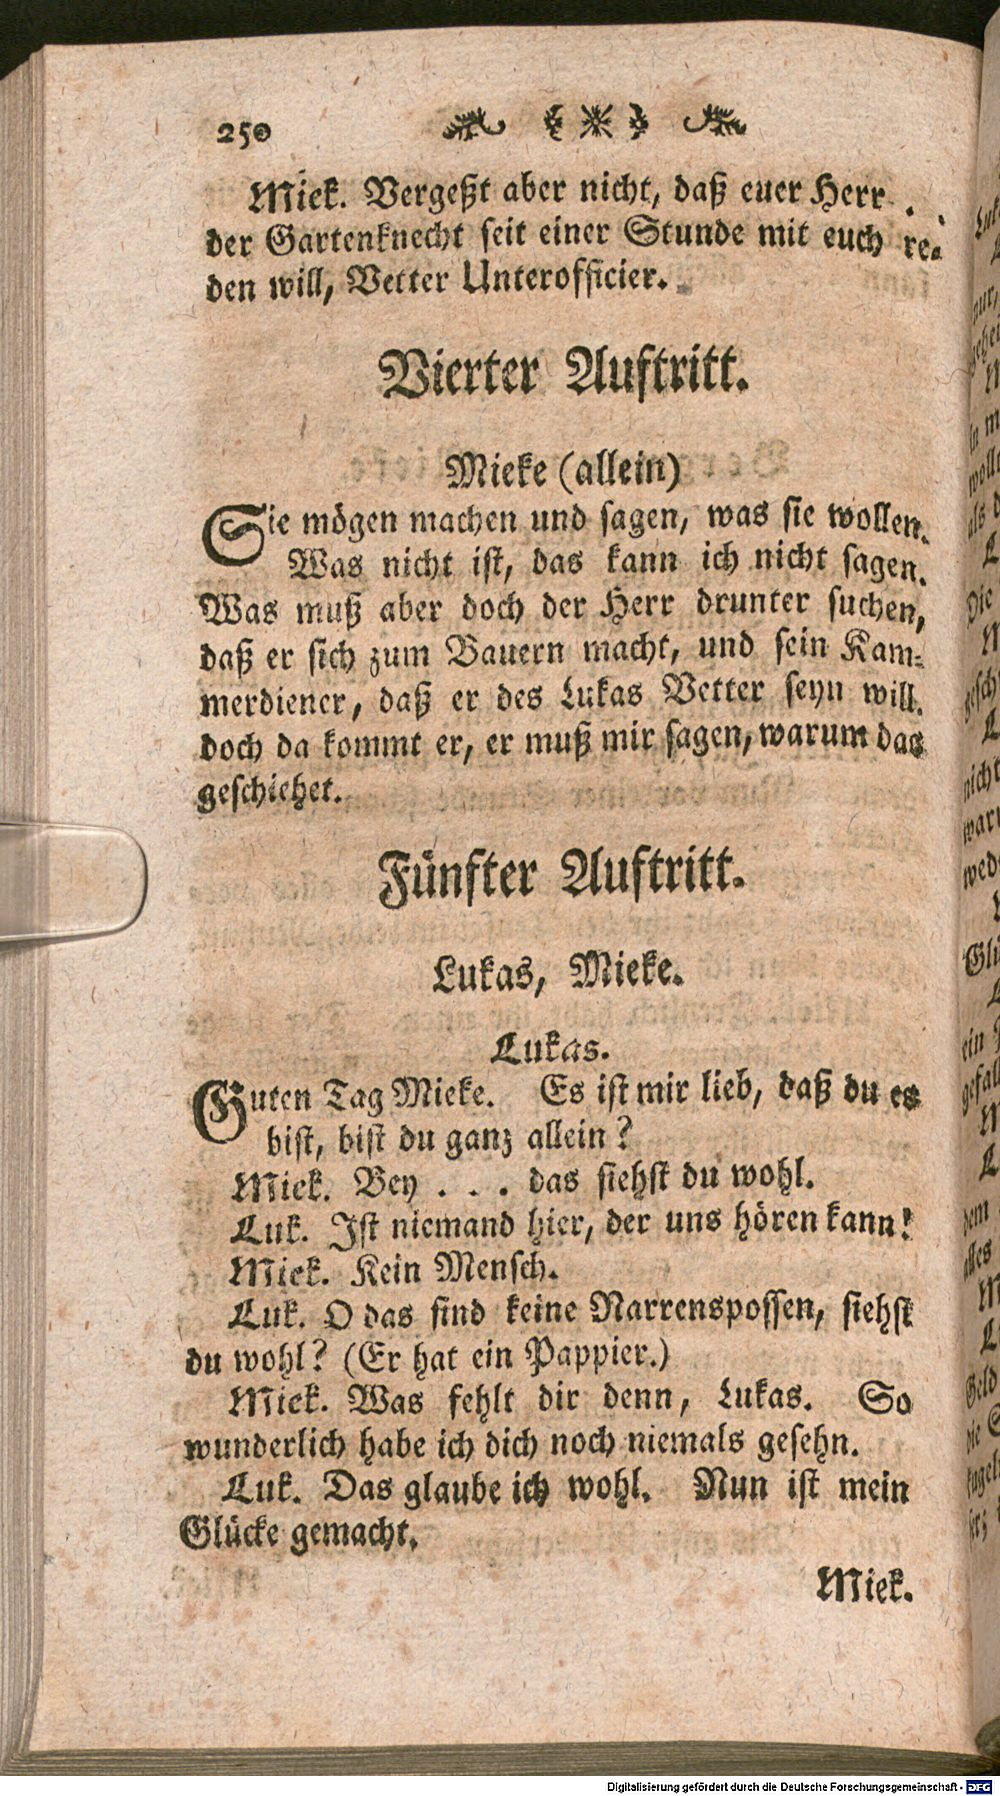 250
Miek. Vergeßt aber nicht, daß euer Herr . .
der Gartenknecht seit einer Stunde mit euch re-
den will, Vetter Unterofficier.
Vierter Auftritt.
Mieke (allein)
Sie mögen machen und sagen, was sie wollen.
Was nicht ist, das kann ich nicht sagen.
Was muß aber doch der Herr drunter suchen,
daß er sich zum Bauern macht, und sein Kam-
merdiener, daß er des Lukas Vetter seyn will.
doch da kommt er, er muß mir sagen, warum das
geschiehet.
Fünfter Auftritt.
Lukas, Mieke.
Lukas.
Guten Tag Mieke. Es ist mir lieb, daß du es
bist, bist du ganz allein?
Miek. Bey . . . das siehst du wohl.
Luk. Ist niemand hier, der uns hören kann!
Miek. Kein Mensch.
Luk. O das sind keine Narrenspossen, siehst
du wohl? (Er hat ein Pappier.)
Miek. Was fehlt dir denn, Lukas. So
wunderlich habe ich dich noch niemals gesehn.
Luk. Das glaube ich wohl. Nun ist mein
Glücke gemacht.
Miek.
Digitalisierung gefördert durch die Deutsche Forschungsgemeinschaft - DFG